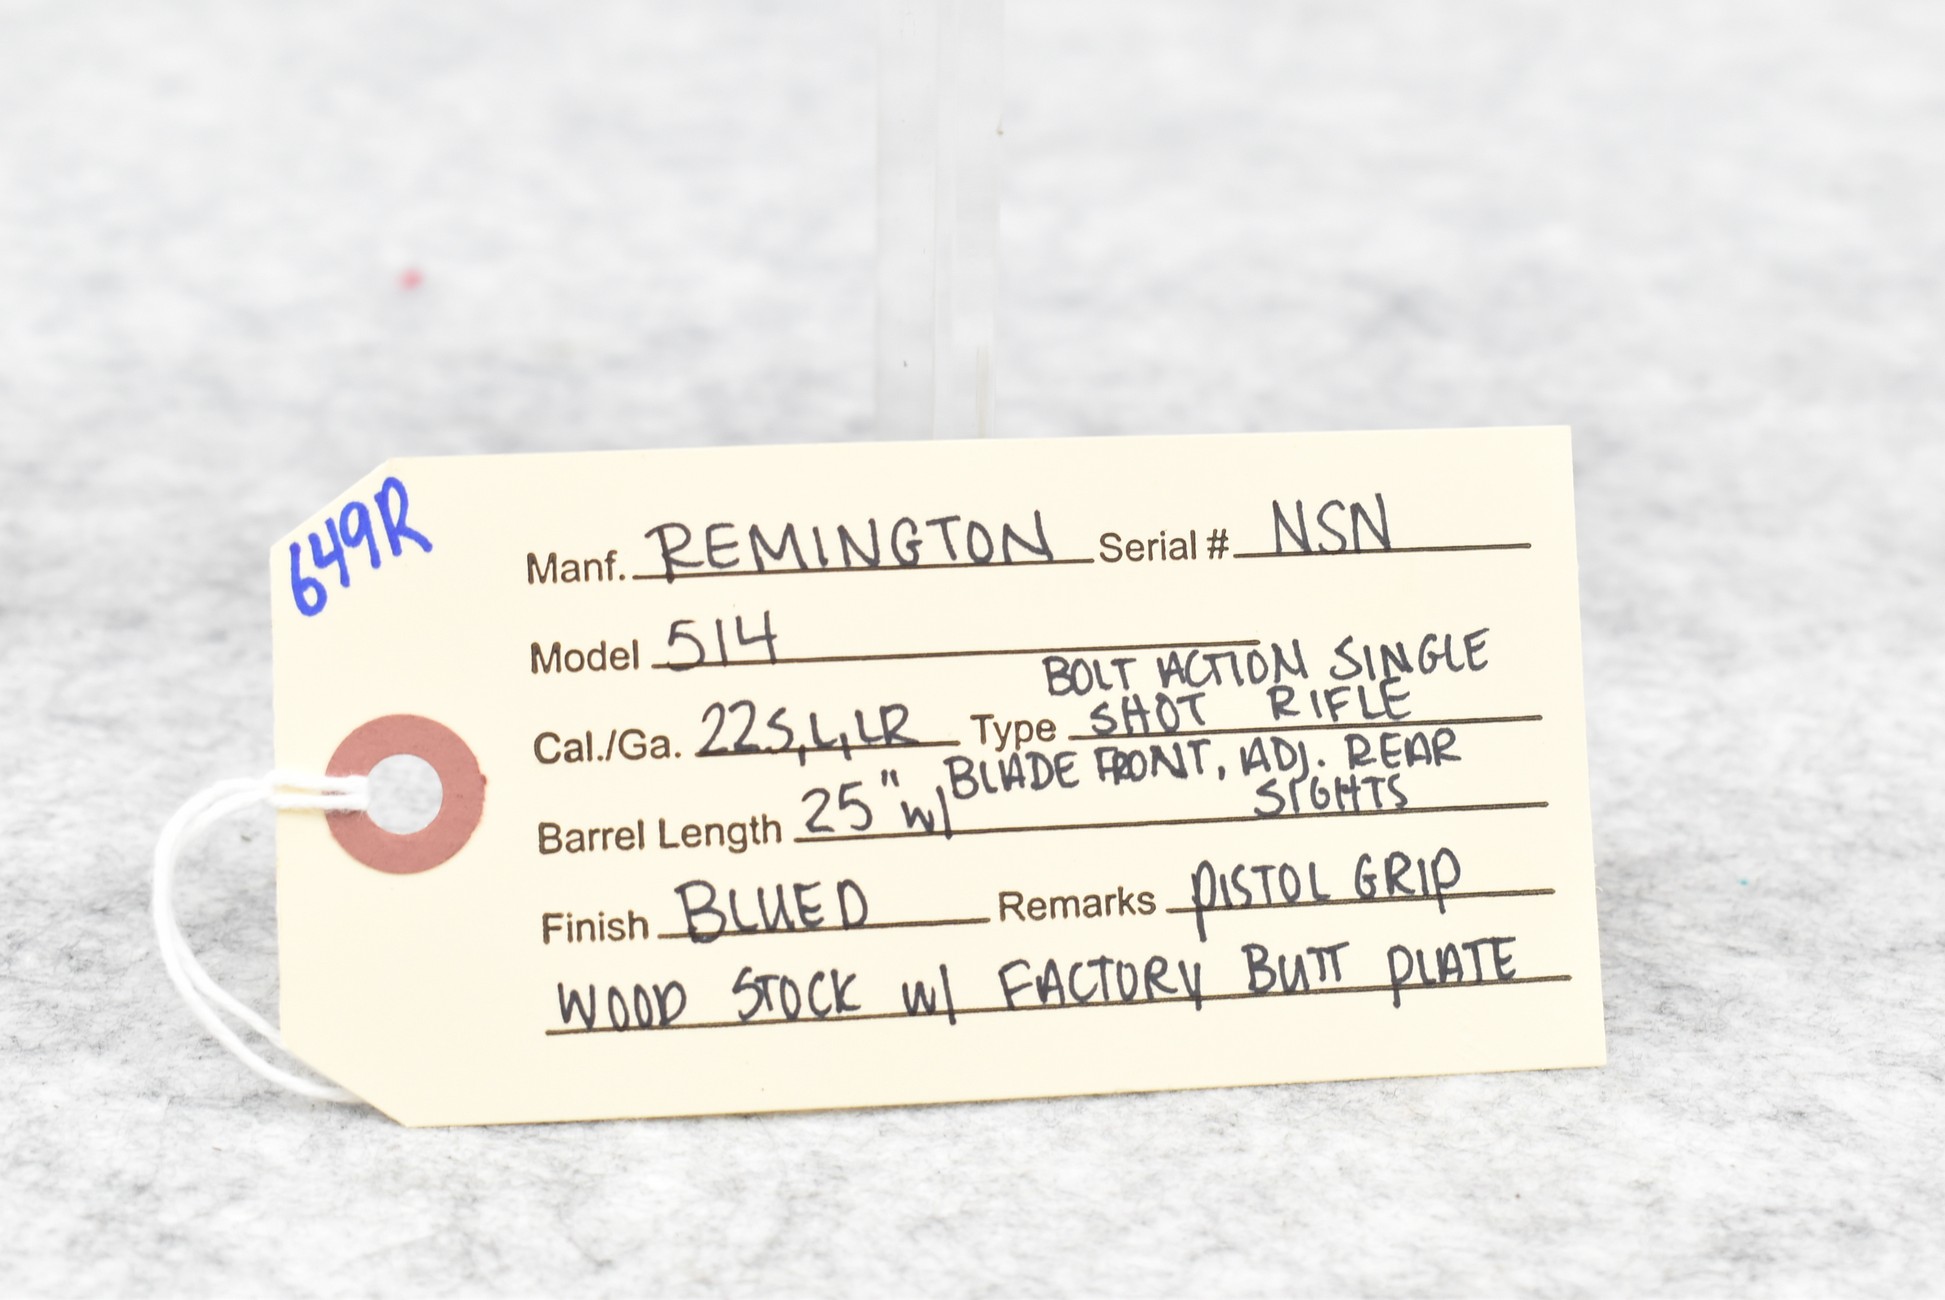 649R
Manf. REMINGTON Serial # NSN
Model 514
BOLT ACTION SINGLE
Cal./Ga. 22S,L,LR Type SHOT RIFLE
BLADE FRONT, ADJ. REAR
Barrel Length 25" w/ SIGHTS
Finish BLUED Remarks PISTOL GRIP
WOOD STOCK w/ FACTORY BUTT PLATE